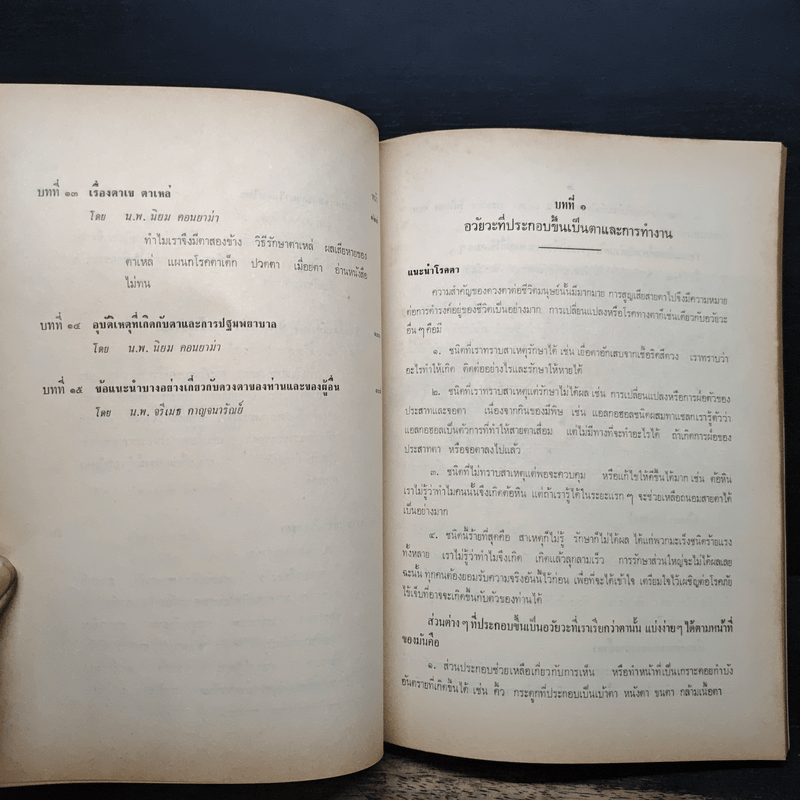 บทที่ ๑๓ เรื่องตาเข ตาเหล่
โดย น.พ. นิยม คอนยาม่า
ทำไมเราจึงมีตาสองข้าง วิธีรักษาตาเหล่ ผลเสียหายของ
ตาเหล่ แผนกโรคตาเด็ก ปวดตา เมื่อยตา อ่านหนังสือ
ไม่ทน
บทที่ ๑๔ อุบัติเหตุที่เกิดกับตาและการปฐมพยาบาล
โดย น.พ. นิยม คอนยาม่า
บทที่ ๑๕ ข้อแนะนำบางอย่างเกี่ยวกับดวงตาของท่านและของผู้อื่น
โดย น.พ. จรีเมธ กาญจนารัณย์
บทที่ ๑
อวัยวะที่ประกอบขึ้นเป็นตาและการทำงาน
แนะนำโรคตา
ความสำคัญของดวงตาต่อชีวิตมนุษย์นั้นมีมากมาย การสูญเสียสายตาไปจึงมีความหมาย
ต่อการดำรงค์อยู่ของชีวิตเป็นอย่างมาก การเปลี่ยนแปลงหรือโรคทางตาก็เช่นเดียวกับอวัยวะ
อื่น ๆ คือมี
๑. ชนิดที่เราทราบสาเหตุรักษาได้ เช่น เยื่อตาอักเสบจากเชื้อริคสีดวง เราทราบว่า
อะไรทำให้เกิด ติดต่ออย่างไรและรักษาให้หายได้
๒. ชนิดที่เราทราบสาเหตุแต่รักษาไม่ได้ผล เช่น การเปลี่ยนแปลงหรือการฝ่อตัวของ
ประสาทและจอตา เนื่องจากกินของมีพิษ เช่น แอลกอฮอล์ชนิดผสมทาแชลกเรารู้ตัวว่า
แอลกอฮอลเป็นตัวการที่ทำให้สายตาเสื่อม แต่ไม่มีทางที่จะทำอะไรได้ ถ้าเกิดการฝ่อของ
ประสาทตา หรือจอตาลงไปแล้ว
๓. ชนิดที่ไม่ทราบสาเหตุแต่พอจะควบคุม หรือแก้ไขให้ดีขึ้นได้มาก เช่น ต้อหิน
เราไม่รู้ว่าทำไมคนนั้นจึงเกิดต้อหิน แต่ถ้าเรารู้ได้ในระยะแรก ๆ จะช่วยเหลือถนอมสายตาได้
เป็นอย่างมาก
๔. ชนิดนี้ร้ายที่สุดคือ สาเหตุก็ไม่รู้ รักษาก็ไม่ได้ผล ได้แก่พวกมะเร็งชนิดร้ายแรง
ทั้งหลาย เราไม่รู้ว่าทำไมจึงเกิด เกิดแล้วลุกลามเร็ว การรักษาส่วนใหญ่จะไม่ได้ผลเลย
ฉะนั้น ทุกคนต้องยอมรับความจริงอันนี้ไว้ก่อน เพื่อที่จะได้เข้าใจ เตรียมใจไว้เผชิญต่อโรคภัย
ไข้เจ็บที่อาจจะเกิดขึ้นกับตัวของท่านได้
ส่วนต่าง ๆ ที่ประกอบขึ้นเป็นอวัยวะที่เราเรียกว่าตานั้น แบ่งง่าย ๆ ได้ตามหน้าที่
ของมันคือ
๑. ส่วนประกอบช่วยเหลือเกี่ยวกับการเห็น หรือทำหน้าที่เป็นเกราะคอยกำบัง
อันตรายที่เกิดขึ้นได้ เช่น คิ้ว กระดูกที่ประกอบเป็นเบ้าตา หนังตา ขนตา กล้ามเนื้อตา